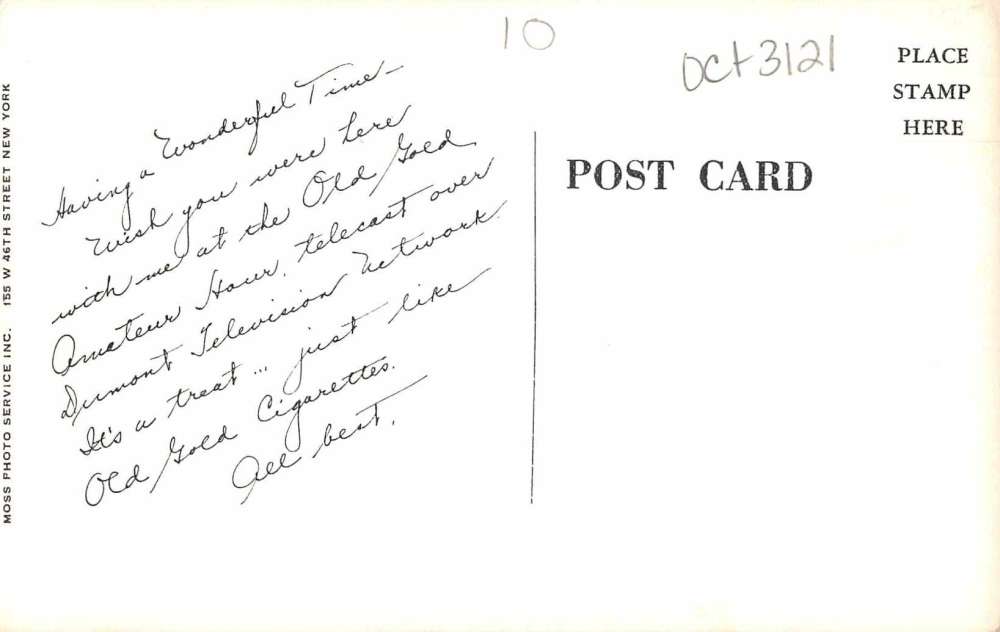 MOSS PHOTO SERVICE INC. 155 W 46TH STREET NEW YORK
Having a Wonderful Time –
Wish you were here
with me at the Old Gold
Amateur Hour, telecast over
Dumont Television Network
It's a treat ... just like
Old Gold Cigarettes.
All best,
10
Oct 3121
PLACE
STAMP
HERE
POST CARD